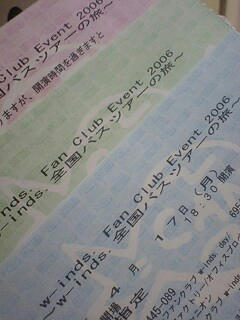 Club Event 2006
国バス・ツアーの旅～
りますが、開演時間を過ぎますと
nds. Fan Club Event 2006
inds. 全国バス・ツアーの旅～
w-inds. Fan Club Event 2006
～w-inds. 全国バス・ツアーの旅～
4月17日(月)
18:30 開演
開場
指定
445-089
ファンクラブ w-inds.day/